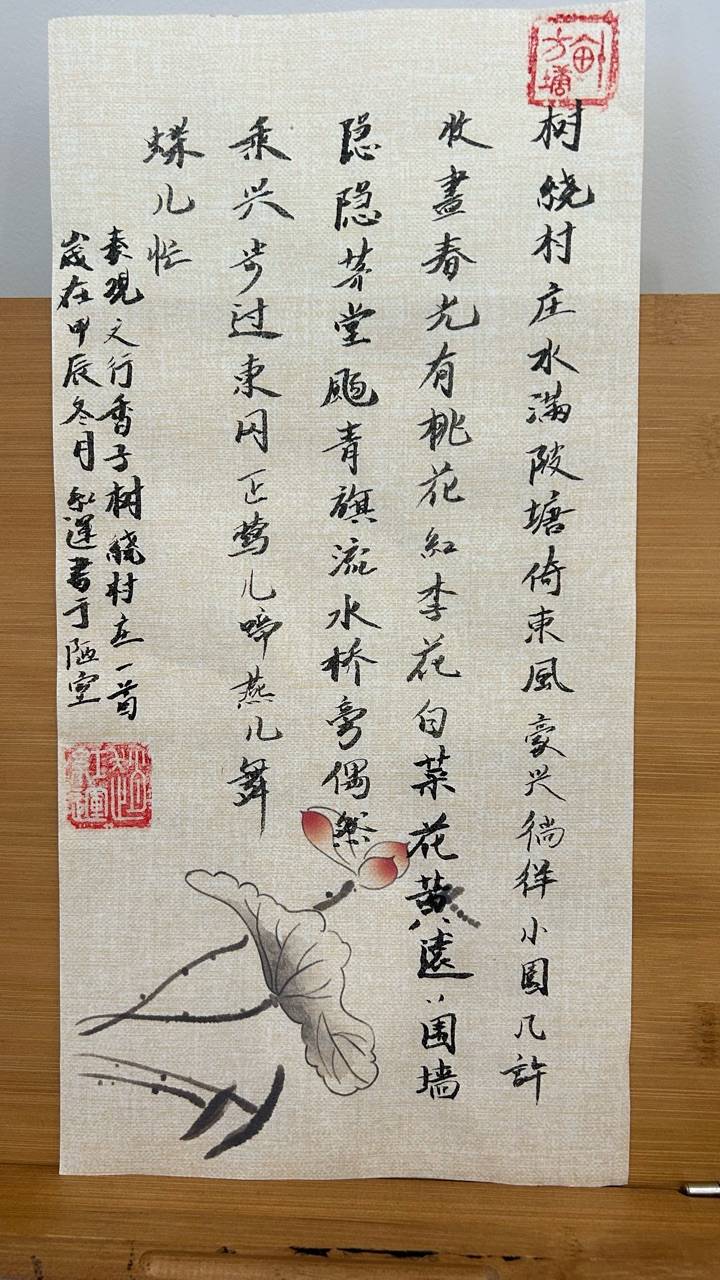 半亩方塘
树繞村庄水满陂塘倚東風豪兴徜徉小園几許
收盡春光有桃花紅李花白菜花黄遠〻围墙
隐隐茅堂飏青旗流水桥旁偶然
乘兴步过東冈正莺儿啼燕儿舞
蝶儿忙
秦观文行香子树繞村庄一首
歲在甲辰冬月红運書于陋室